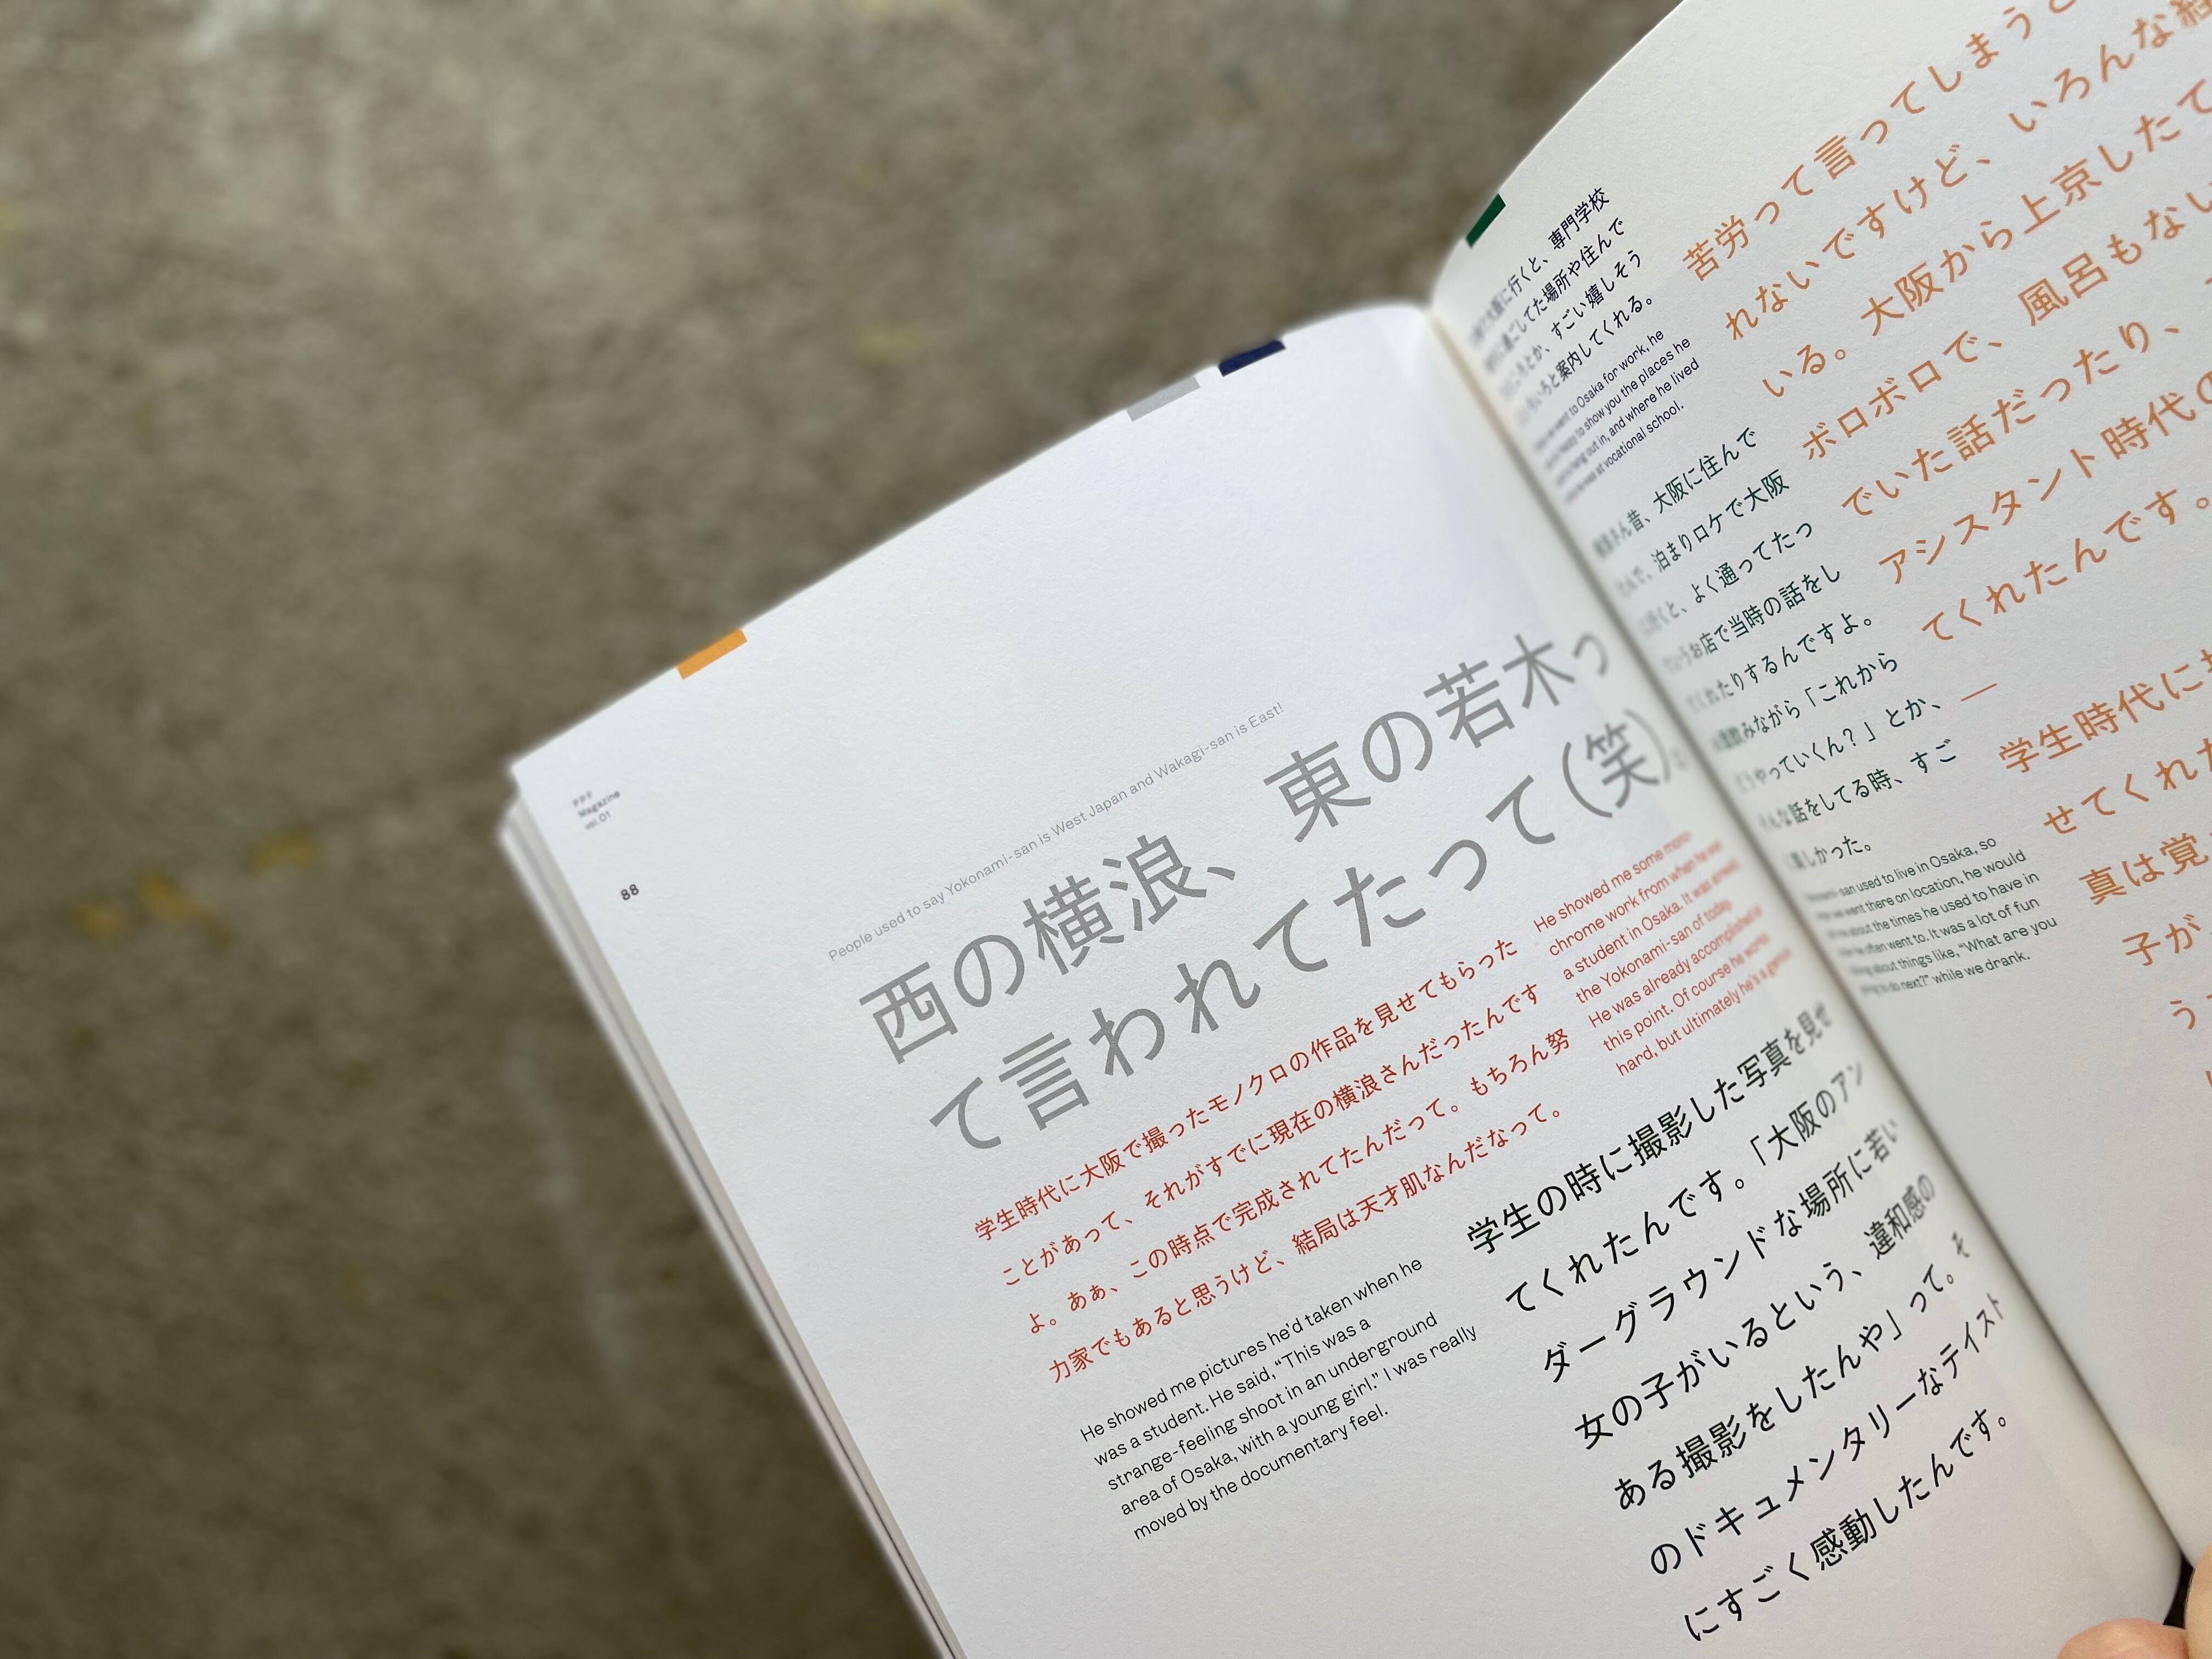 PPF
Magazine
vol.01
88
People used to say Yokonami-san is West Japan and Wakagi-san is East!
西の横浪、東の若木っ
て言われてたって(笑)
学生時代に大阪で撮ったモノクロの作品を見せてもらった
ことがあって、それがすでに現在の横浪さんだったんです
よ。ああ、この時点で完成されてたんだって。もちろん努
力家でもあると思うけど、結局は天才肌なんだなって。
He showed me some mono-
chrome work from when he was
a student in Osaka. It was already
the Yokonami-san of today.
He was already accomplished at
this point. Of course he works
hard, but ultimately he's a genius
He showed me pictures he'd taken when he
was a student. He said, “This was a
strange-feeling shoot in an underground
area of Osaka, with a young girl.” I was really
moved by the documentary feel.
学生の時に撮影した写真を見せ
てくれたんです。「大阪のアン
ダーグラウンドな場所に若い
女の子がいるという、違和感の
ある撮影をしたんや」って。そ
のドキュメンタリーなテイスト
にすごく感動したんです。
に行くと、専門学校
してた場所や住んで
とか、すごい嬉しそう
と案内してくれる。
went to Osaka for work, he
to show you the places he
hang out in, and where he lived
at vocational school.
さん昔、大阪に住んで
で、泊まりロケで大阪
くと、よく通ってたっ
お店で当時の話をし
たりするんですよ。
飲みながら「これから
やっていくん？」とか、
な話をしてる時、すご
しかった。
-san used to live in Osaka, so
went there on location, he would
about the times he used to have in
often went to. It was a lot of fun
about things like, “What are you
to do next?” while we drank.
苦労って言ってしまうと
れないですけど、いろんな
いる。大阪から上京したて
ボロボロで、風呂もない
でいた話だったり、
アシスタント時代の
てくれたんです。
—
学生時代に
せてくれた
真は覚
子が
う